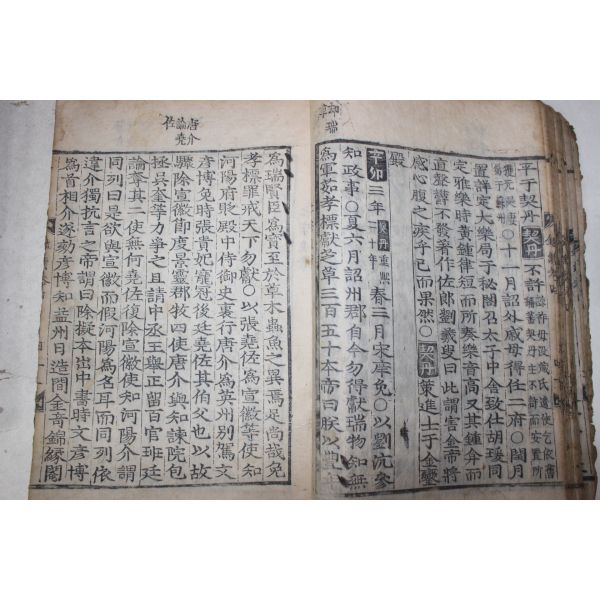 卻瑞
草
辛于契丹契丹不許諒祚母沒臧氏遣使乞依舊
稱藩契丹主許而安置所
獲元昊妻
于蘇州○十一月詔外戚毋得任二府○閏月
置詳定大樂局于秘閣召太子中舍致仕胡瑗同
定雅樂時黃鍾律短而所奏樂音高又其鍾弇而
直聲鬱不發著作佐郎劉羲叟曰此謂害金帝將
感心腹之疾乎已而果然○契丹策進士于金鑾
殿
辛卯三年契丹重熙
二十年春三月宋庠免○以劉沆參
知政事○夏六月詔州郡自今勿得獻瑞物知無
爲軍茹孝標獻芝草三百五十本帝曰朕以豊年
唐介
論堯
佐
爲瑞賢臣爲寶至於草木蟲魚之異焉足尚哉免
孝標罪戒天下勿獻○以張堯佐爲宣徽等使知
河陽府貶殿中侍御史裏行唐介爲英州別駕文
彦博免時張貴妃寵冠後廷堯佐其伯父也以故
驟除宣徽節度景靈郡牧四使唐介與知諫院包
拯吳奎等力爭之且請中丞王舉正留百官班廷
論奪其二使無何堯佐復除宣徽使知河陽介謂
同列曰是欲與宣徽而假河陽爲名耳而同列依
違介獨抗言之帝謂曰除擬本出中書時文彦博
爲首相介遂劾彦博知益州日造間金奇錦緣閹